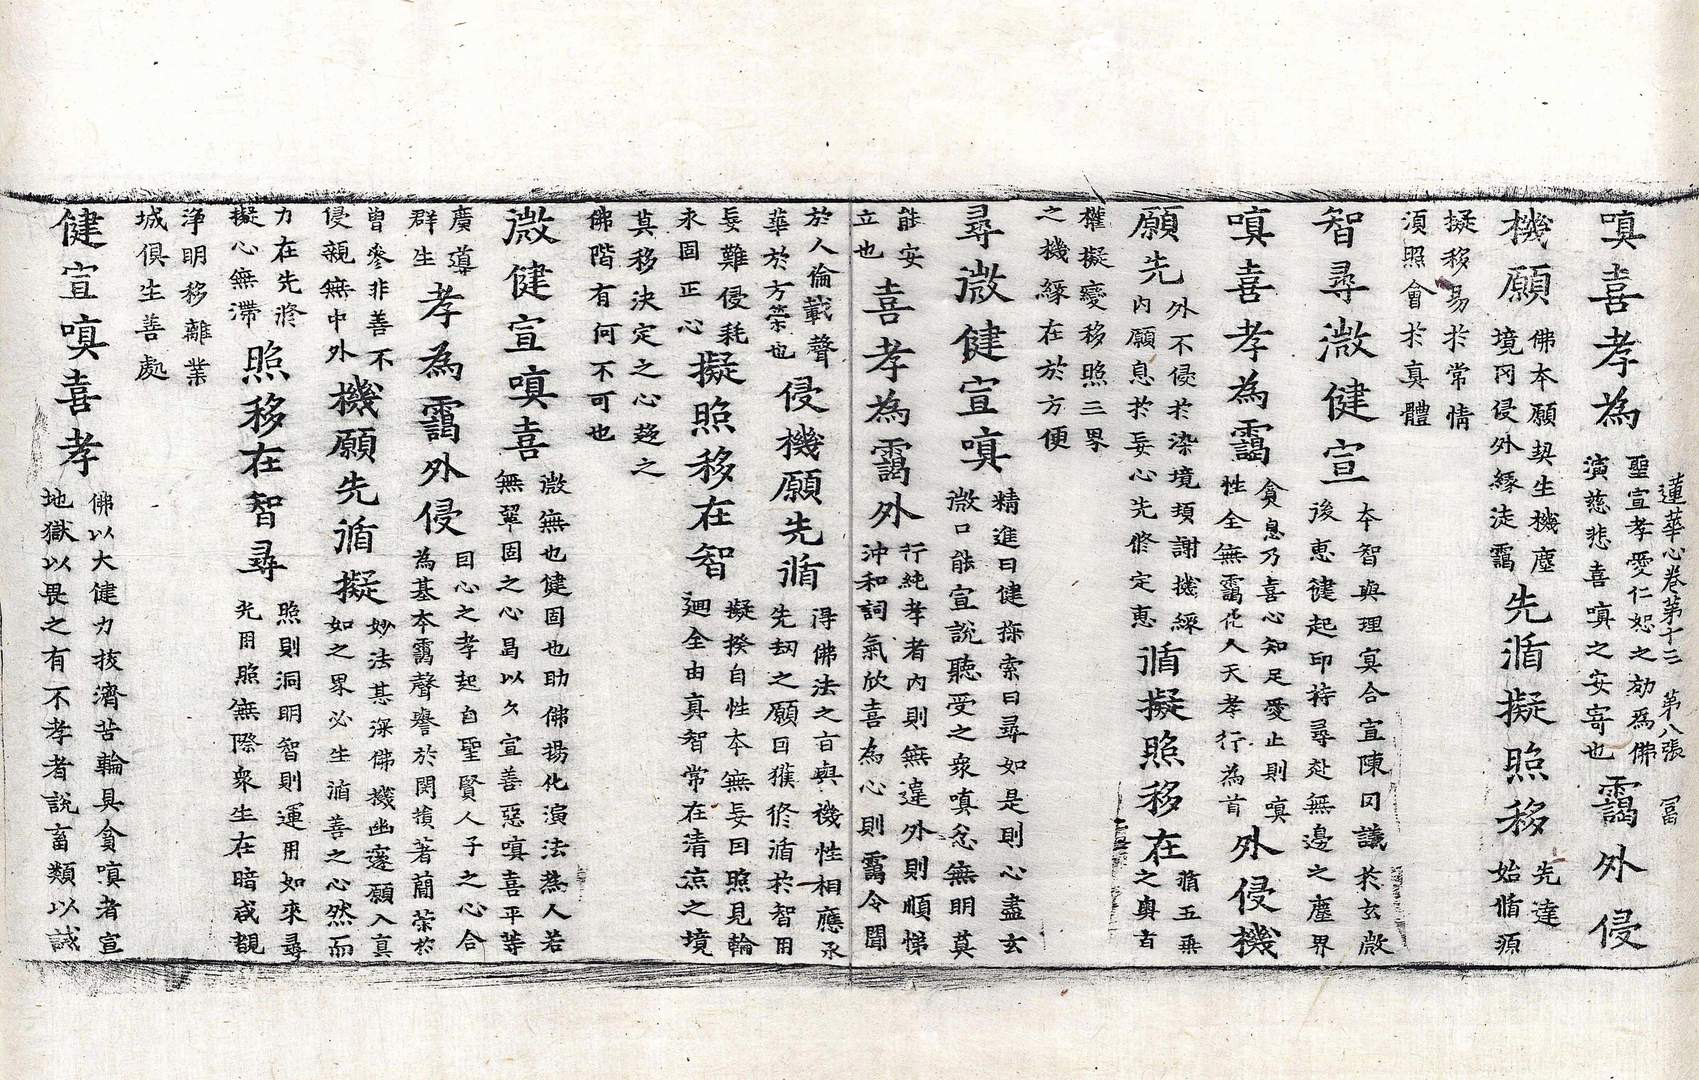 蓮華心卷第十三　第八張　冨
嗔喜孝為
聖宣孝愛仁恕之劾為佛
演慈悲喜嗔之安寄也
靄外侵
機願
佛本願契生機塵
境罔侵外緣徒靄
先循擬照移
先達
始脩源
擬移易於常情
須照會於真體
智尋微健宣
本智與理冥合宣陳同議於玄微
後惠健起印持尋赴無邊之塵界
嗔喜孝為靄
貪息乃喜心知足愛止則嗔
性全無靄化人天孝行為首
外侵機
願先
外不侵於染境頓謝攀緣
內願息於妄心先修定惠
循擬照移在
循五乘
之奧旨
權擬變移照三界
之機緣在於方便
尋微健宣嗔
精進曰健採索曰尋如是則心盡玄
微口能宣說聽受之衆嗔忿無明莫
能安
立也
喜孝為靄外
行純孝者內則無違外則順悌
沖和詞氣欣喜為心則靄令聞
於人倫載聲
華於方荣也
侵機願先循
得佛法之旨與機性相應承
先刼之願曰獲修循於智用
妄難侵耗
永固正心
擬照移在智
擬揆自性本無妄曰照見輪
迴全由真智常在清凉之境
莫移決定之心趍之
佛階有何不可也
微健宣嗔喜
微無也健固也助佛揚化演法為人若
無鞏固之心曷以久宣善惡嗔喜平等
廣導
群生
孝為靄外侵
因心之孝起自聖賢人子之心合
為基本靄聲譽於閔損著蘭荣於
曾參非善不
侵親無中外
機願先循擬
妙法甚深佛機幽邃願入真
如之界必生循善之心然而
力在先修
擬心無滯
照移在智尋
照則洞明智則運用如來尋
光用照無際衆生在暗咸覩
淨明移離業
城俱生善處
健宣嗔喜孝
佛以大健力拔濟苦輪具貪嗔者宣
地獄以畏之有不孝者說畜類以誡